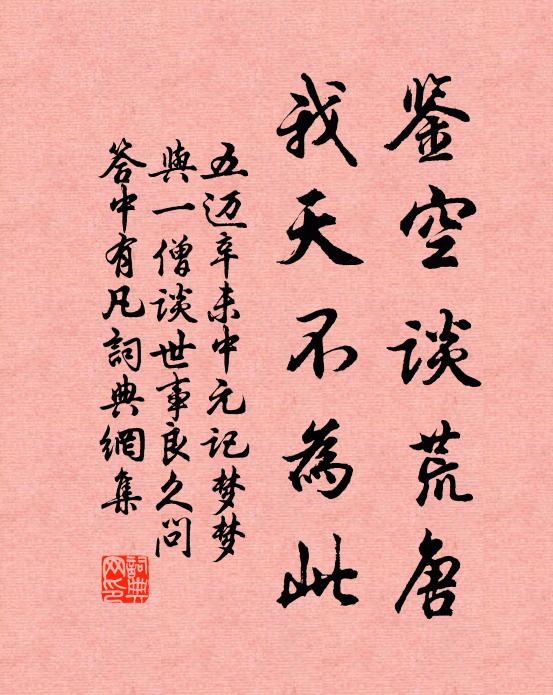 鉴空谈荒唐
我天不為此
五迈辛未中元记梦梦
與一僧谈世事良久问
答中有凡詞典網集
詞典网印